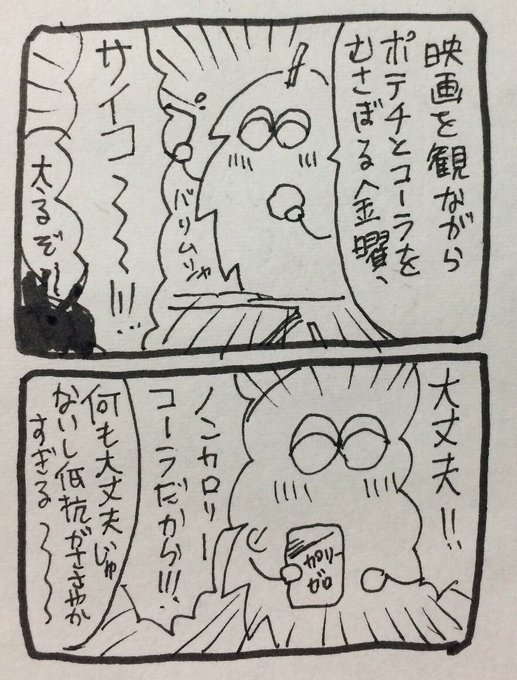 映画を観ながら
ポテチとコーラを
むさぼる金曜、
バリムシャ
サイコ〜〜!!!
太るぞ〜
大丈夫!!
カロリー
ゼロ
ノンカロリー
コーラだから!!!
何も大丈夫じゃ
ないし低抗がささやか
すぎる〜〜〜